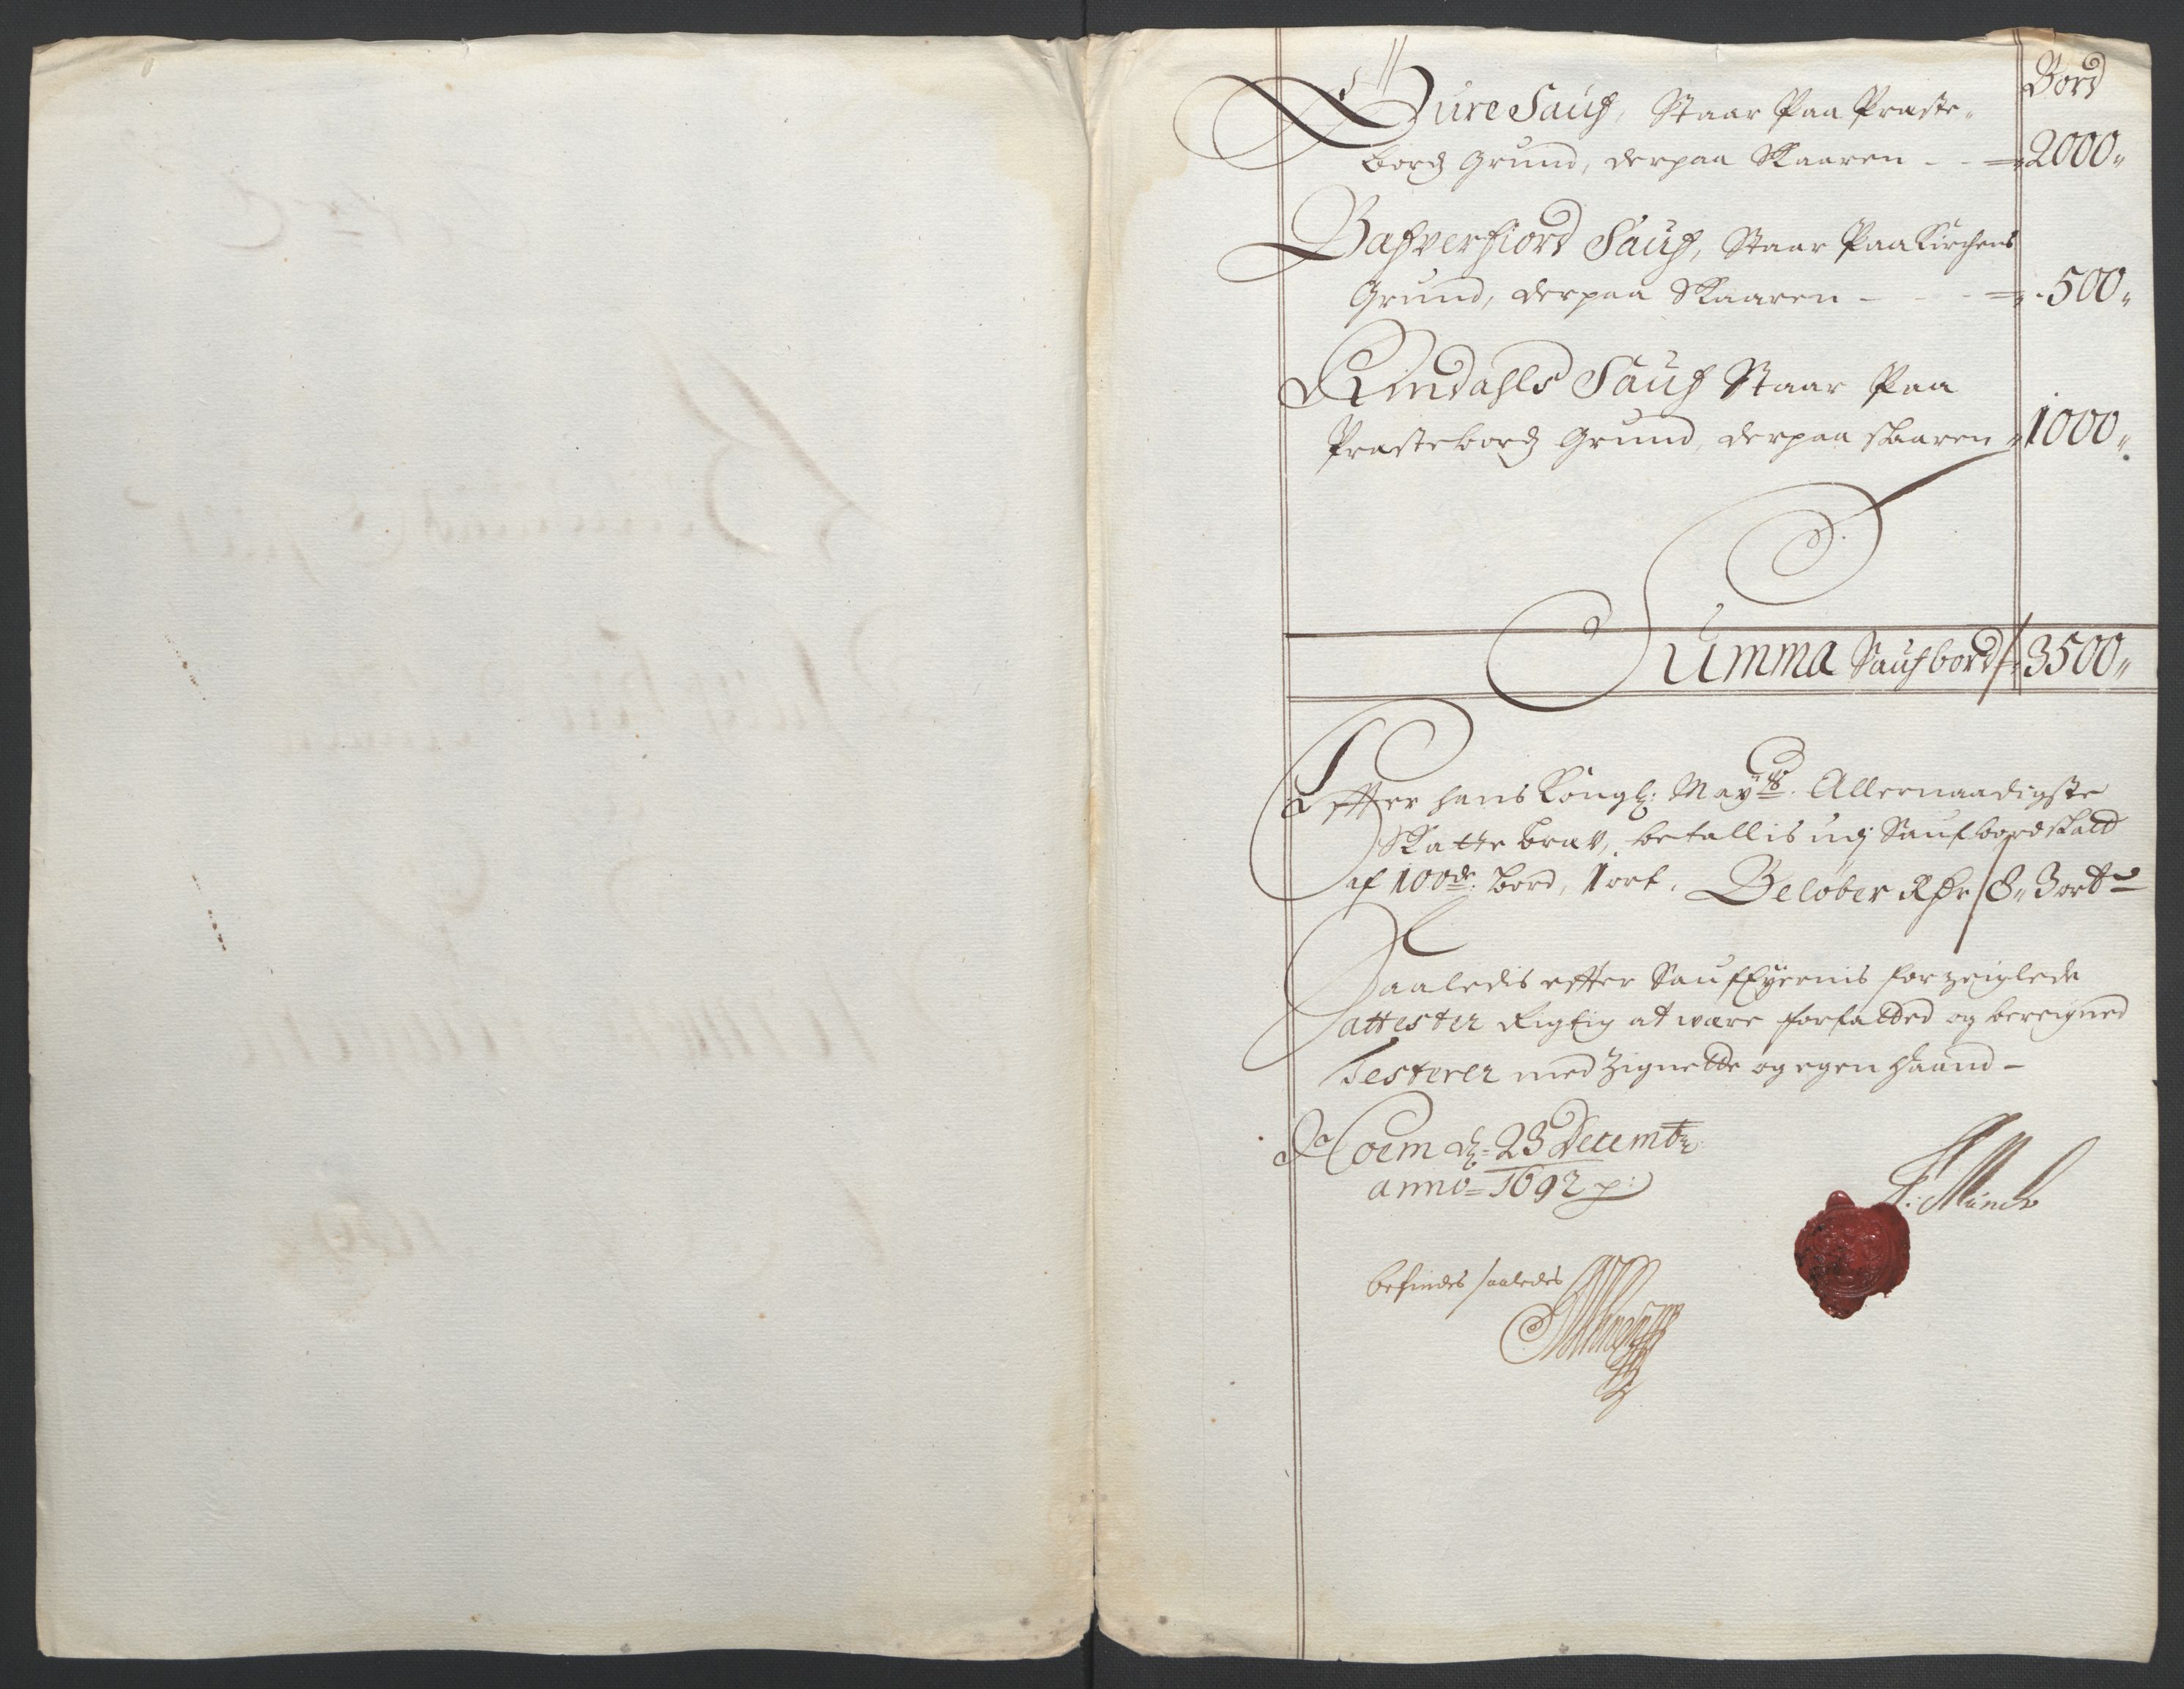 Bord
Bure Saug, Staar Paa Præste-
bordz Grund, derpaa Skaaren - - 2000,,
Bahverfiord Saug, Staar Paa Kirchens
Grund, derpaa Skaaren - - - 500,,
Rindahls Saug Staar Paa
Præstebordz Grund, derpaa skaaren 1000,,
Summa Saugbord 3500,,
Effter hans Kongl: Mayts. Allernaadigste
Skatte brev, betallis udj Saugbordskatt
af 100de. bord, 1 ort, Beløber Rdr 8,, 3 ort
Saaledis effter Saug Eyernis forzeiglede
attester Rigtig at være forfatted og bereigned
Testerer med Zignette og egen Haand -
Coem dh= 23 Decembr
anno= 1692 p:
F: Münch
befindes saaledes